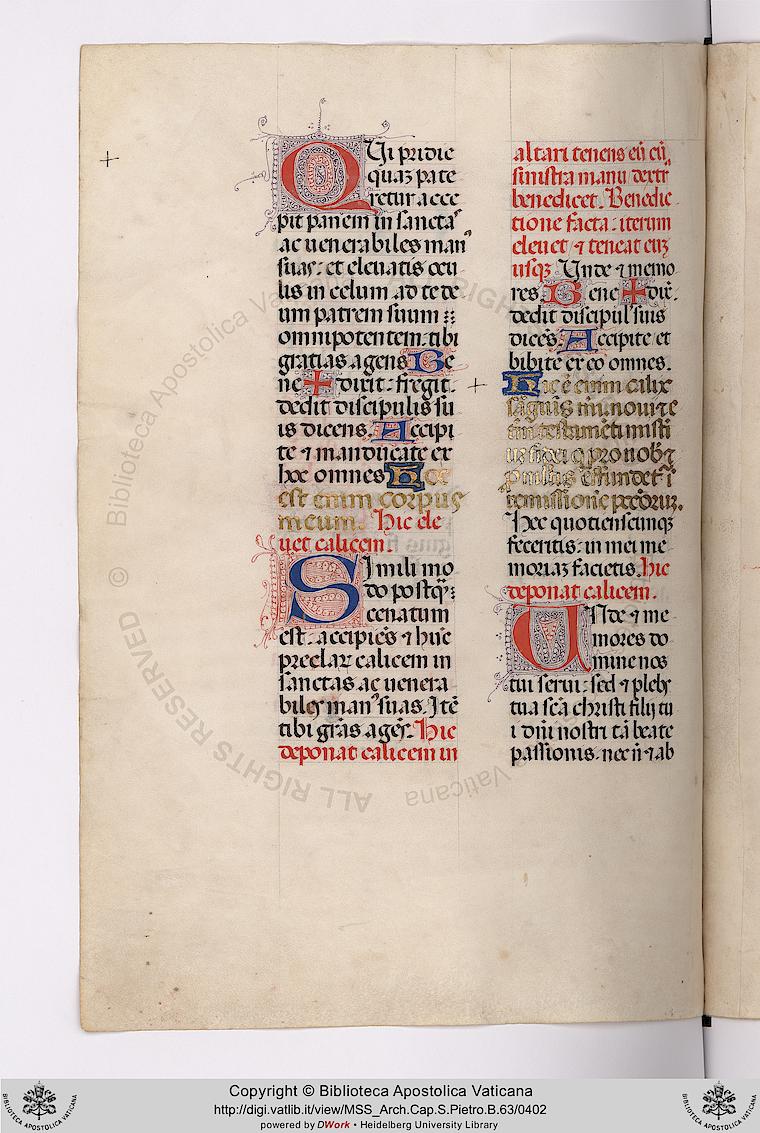 QUi pridie
quaʒ pate
retur acce
pit panem in sanctaˢ
ac uenerabiles man⁹
suas: et eleuatis ocu
lis in celum ad te de
um patrem suum
omnipotentem: tibi
gratias agens Be
ne ✝ dixit: fregit.
dedit discipulis su
is dicens. Accipi
te ⁊ manducate ex
hoc omnes. Hoc
est enim corpus
meum. Hic ele
uet calicem.
Simili mo
do postq̄ꝫ
cenatum
est: accipiēs ⁊ hūc
preclaꝝ calicem in
sanctas ac uenera
biles man⁹ suas. Itē
tibi grās agēs. Hic
deponat calicem in
altari tenens eū cū
sinistra manu dextr
benedicet. Benedic
tione facta: iterum
eleuet ⁊ teneat euʒ
usqꝫ Unde ⁊ memo
res. Bene ✝ dix̄.
dedit discipul' suis
dicēs. Accipite et
bibite ex eo omnes.
Hic ē enim calix
sāguīs mei. noui ⁊ e
tni testamēti. misti
um fidei. q̄ pro nob̄ ⁊
p multis effundet̄ ī
remissionē pccōruꝫ.
Hec quotienscunqꝫ
feceritis: in mei me
moriaʒ facietis. hic
deponat calicem.
Unde ⁊ me
mores do
mine nos
tui serui: sed ⁊ plebs
tua scā christi filij tu
i dn̄i nostri tā beate
passionis. nec n̄ ⁊ ab
© Biblioteca Apostolica Vaticana
ALL RIGHTS RESERVED
Copyright © Biblioteca Apostolica Vaticana
http://digi.vatlib.it/view/MSS_Arch.Cap.S.Pietro.B.63/0402
powered by DWork • Heidelberg University Library
BIBLIOTECA APOSTOLICA VATICANA
BIBLIOTECA APOSTOLICA VATICANA